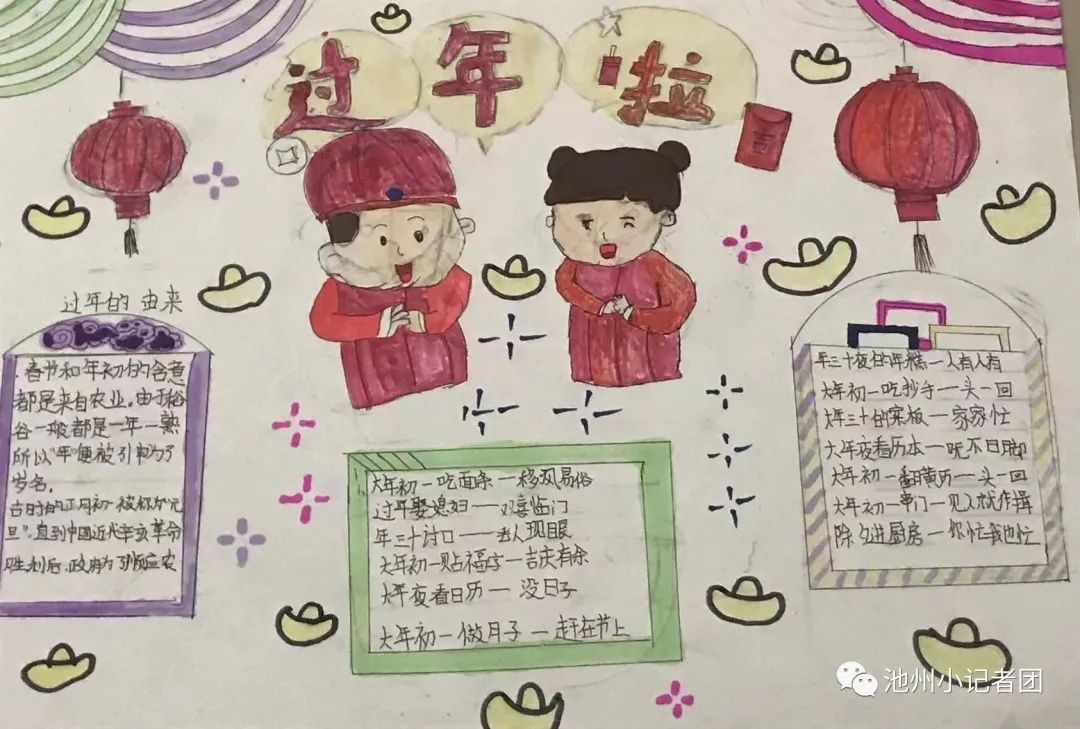 过年啦
吉
过年的由来
春节和年初的含意
都是来自农业,由于稻
谷一般都是一年一熟
所以"年"便被引申为了
岁名,
古时的正月初一被称为"元
旦",直到中国近代辛亥革命
胜利后,政府为了顺应农
大年初一吃面条一移风易俗
过年娶媳妇一一双喜临门
年三十讨口一一丢人现眼
大年初一贴福字一吉庆有余
大年夜看日历一一没日子
大年初一做月子一赶在节上
年三十夜的年糕一人有人有
大年初一吃抄手一头一回
大年三十的案板一家家忙
大年夜看历本一呒不日脚
大年初一翻黄历一头一回
大年初一串门一见人就作揖
除夕进厨房一你忙我也忙
池州小记者团